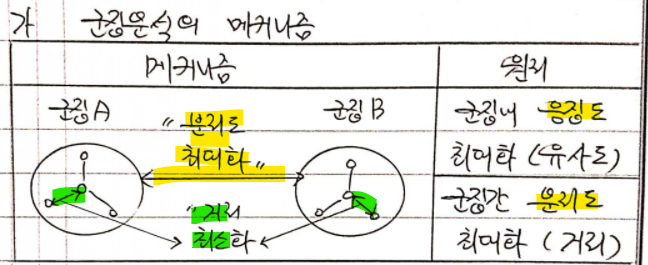 가 군집분석의 메커니즘
메커니즘
원리
군집A
군집B
"분리도
최대화"
"거리
최소화
군집내 응집도
최대화 (유사도)
군집간 분리도
최대화 (거리)